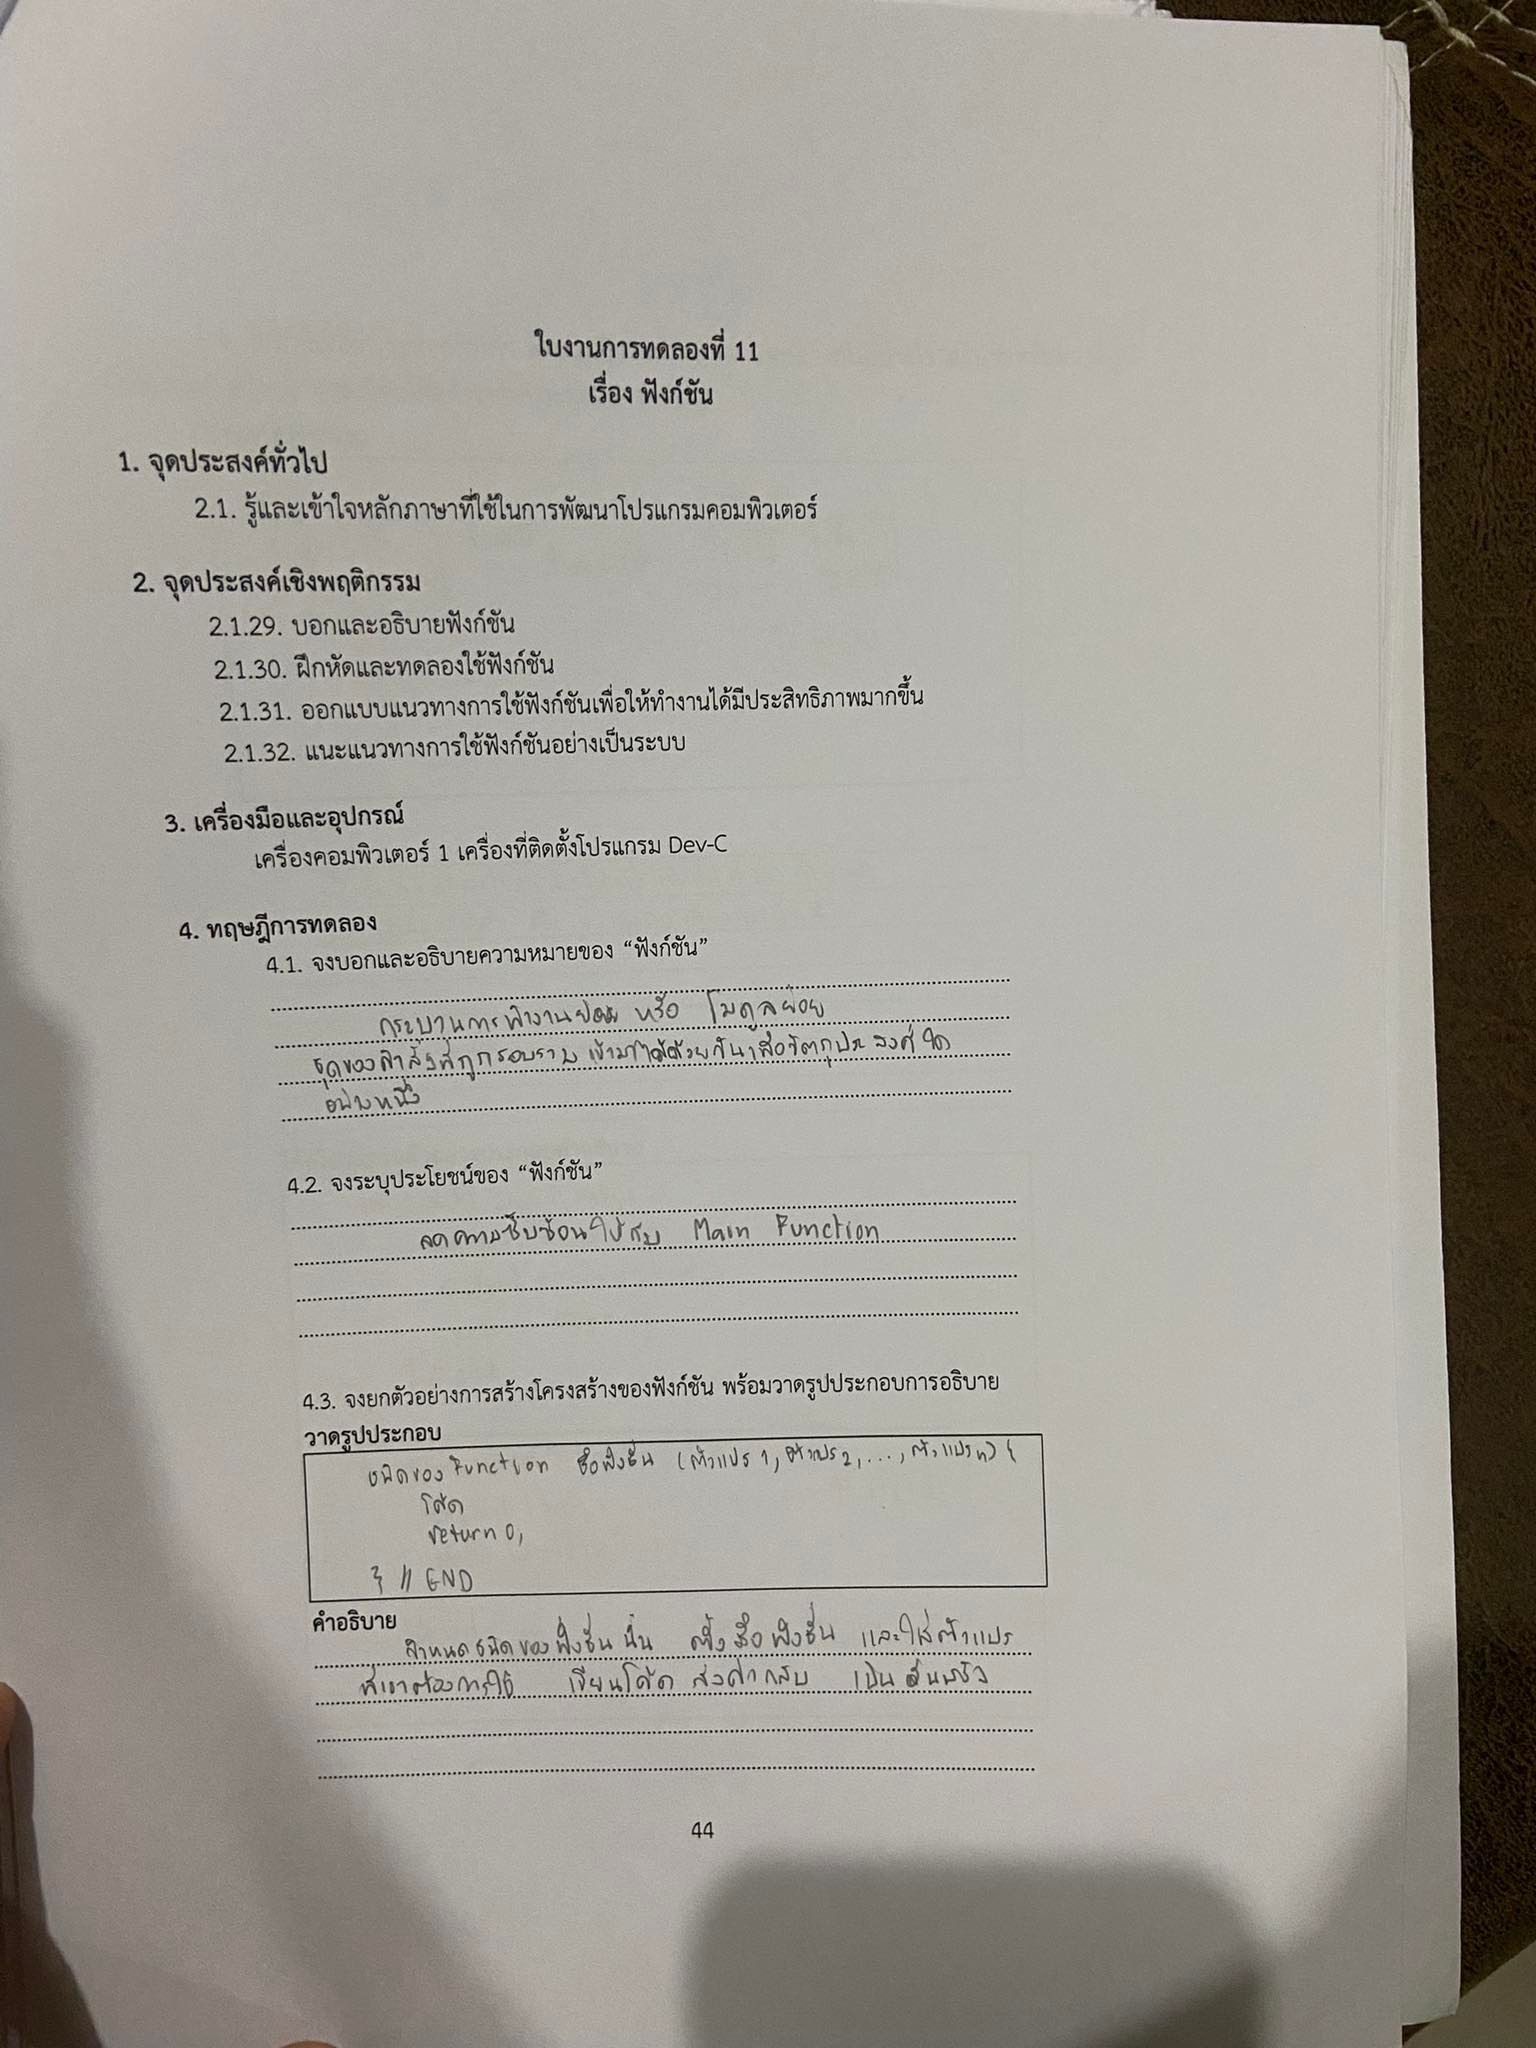 ใบงานการทดลองที่ 11
เรื่อง ฟังก์ชัน
1. จุดประสงค์ทั่วไป
2.1. รู้และเข้าใจหลักภาษาที่ใช้ในการพัฒนาโปรแกรมคอมพิวเตอร์
2. จุดประสงค์เชิงพฤติกรรม
2.1.29. บอกและอธิบายฟังก์ชัน
2.1.30. ฝึกหัดและทดลองใช้ฟังก์ชัน
2.1.31. ออกแบบแนวทางการใช้ฟังก์ชันเพื่อให้ทำงานได้มีประสิทธิภาพมากขึ้น
2.1.32. แนะแนวทางการใช้ฟังก์ชันอย่างเป็นระบบ
3. เครื่องมือและอุปกรณ์
เครื่องคอมพิวเตอร์ 1 เครื่องที่ติดตั้งโปรแกรม Dev-C
4. ทฤษฎีการทดลอง
4.1. จงบอกและอธิบายความหมายของ “ฟังก์ชัน”
กระบวนการทำงานย่อย หรือ โมดูลย่อย
ชุดของคำสั่งที่ถูกรวบรวมเข้ามาไว้ด้วยกันเพื่อวัตถุประสงค์ใด
อย่างหนึ่ง
4.2. จงระบุประโยชน์ของ “ฟังก์ชัน”
ลดความซับซ้อนให้กับ Main Function
4.3. จงยกตัวอย่างการสร้างโครงสร้างของฟังก์ชัน พร้อมวาดรูปประกอบการอธิบาย
วาดรูปประกอบ
ชนิดของ Function ชื่อฟังชั่น (ตัวแปร 1, ตัวแปร 2, ..., ตัวแปร n) {
โค้ด
return 0;
} // END
คำอธิบาย
กำหนดชนิดของฟังชั่นนั้น ตั้งชื่อฟังชั่น และใส่ตัวแปร
ที่เราต้องการใช้ เขียนโค้ด ส่งค่ากลับ เป็นอันเสร็จ
44